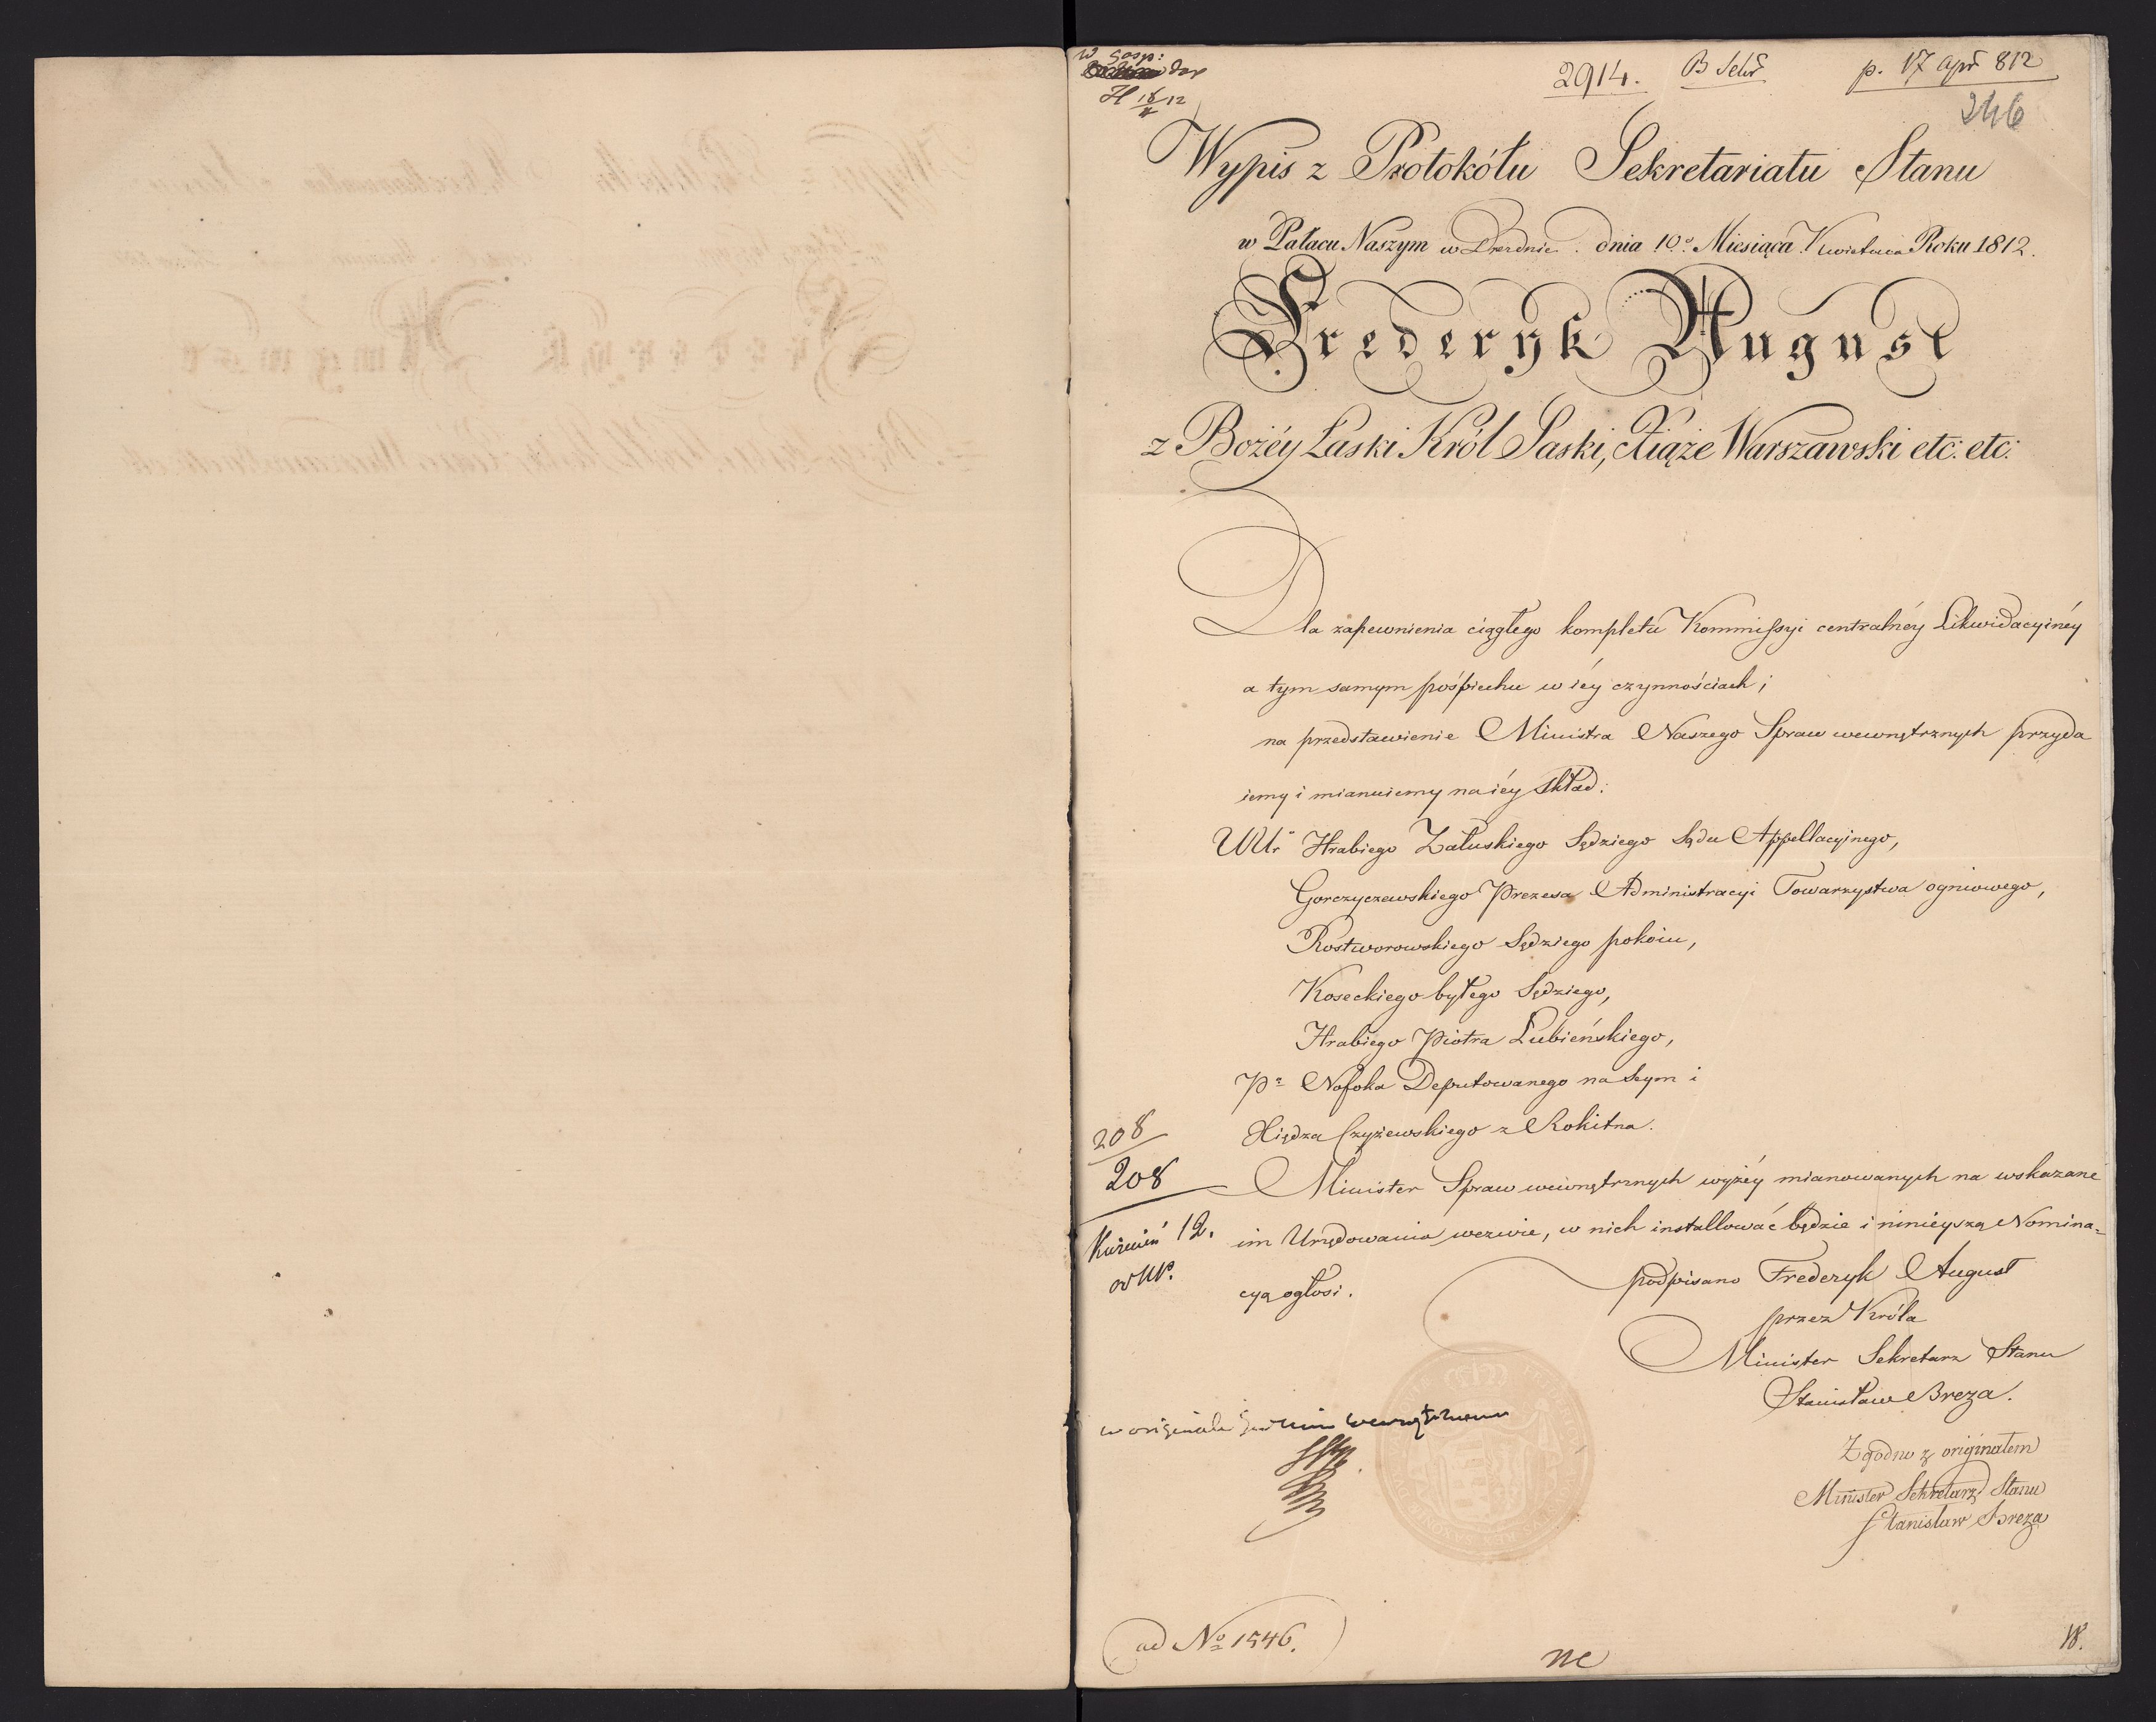 W Gosp:
2914.
p. 17 Apr 812
246
Wypis z Protokółu Sekretariatu Stanu
w Pałacu Naszym w Dreznie. dnia 10º Miesiąca Kwietnia Roku 1812.
Frederyk August
z Bożéy Łaski Król Saski, Xiąże Warszawski etc: etc:
Dla zapewnienia ciągłego kompletu Kommissyi centralnéy Likwidacyinéy
a tym samym pośpiechu w iéy czynnościach;
na przedstawienie Ministra Naszego Spraw wewnętrznych przyda
iemy i mianuiemy na iéy skład:
UUr Hrabiego Załuskiego Sędziego Sądu Appellacyjnego,
Gorczyczewskiego Prezesa Administracyi Towarzystwa ogniowego,
Rostworowskiego Sędziego pokoiu,
Koseckiego byłego Sędziego,
Hrabiego Piotra Łubieńskiego,
Pª Nofoka Deputowanego na Seym i
Xiędza Czyżewskiego z Rokitna.
208
208
Minister Spraw wewnętrznych wyżéy mianowanych na wskazane
im Urzędowania wezwie, w nich installować będzie i ninieyszą Nomina-
cyą ogłosi.
Kwiecień 12.
podpisano Frederyk August
przez Króla
Minister Sekretarz Stanu
Stanisław Breza.
w originale
Zgodno z originałem
Minister Sekretarz Stanu
Stanisław Breza
ad Nº 1546.